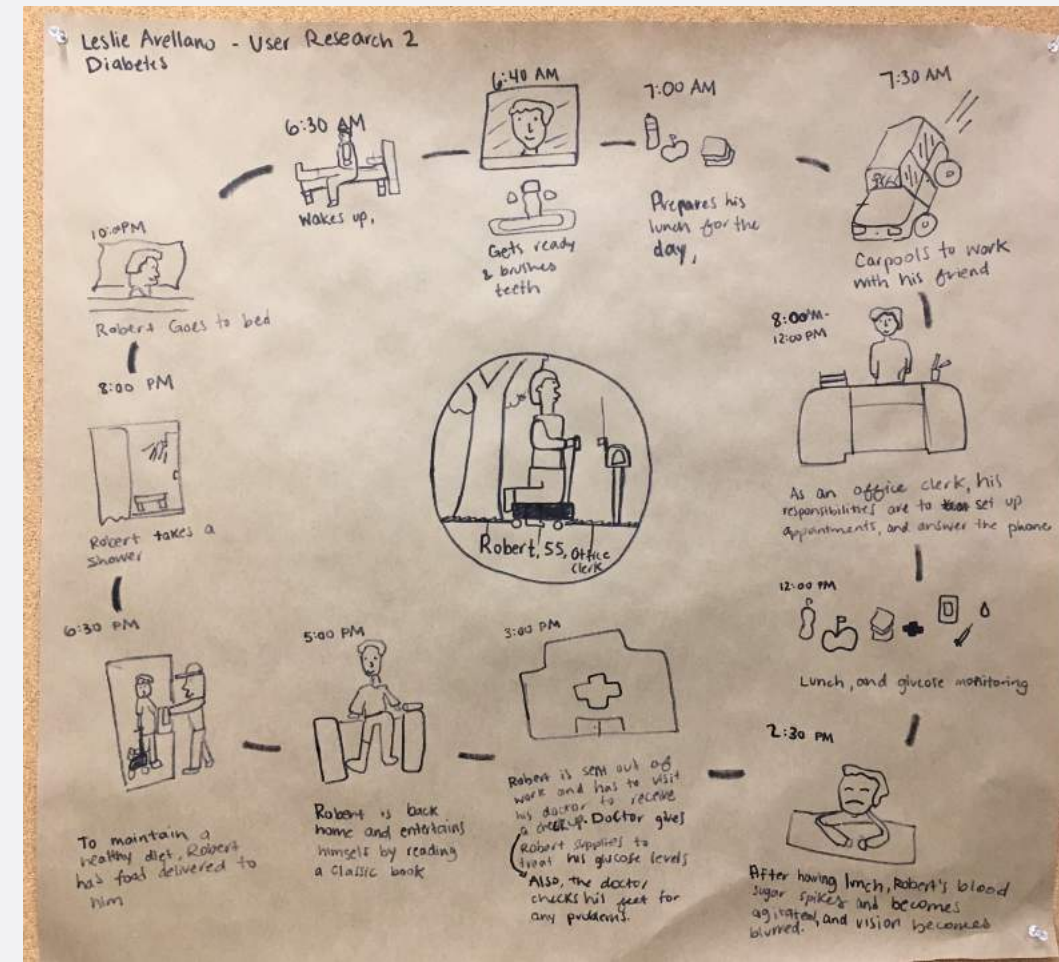 Leslie Arellano - User Research 2
Diabetes
6:30 AM
Wakes up,
6:40 AM
Gets ready
& brushes
teeth
7:00 AM
Prepares his
lunch for the
day,
7:30 AM
Carpools to work
with his friend
8:00 AM-
12:00 PM
As an office clerk, his
responsibilities are to set up
appointments, and answer the phone
12:00 PM
Lunch, and glucose monitoring
2:30 PM
After having lunch, Robert's blood
sugar spikes and becomes
agitated, and vision becomes
blurred.
3:00 PM
Robert is sent out of
work and has to visit
his doctor to receive
a checkup. Doctor gives
Robert supplies to
treat his glucose levels
Also, the doctor
checks his feet for
any problems.
5:00 PM
Robert is back
home and entertains
himself by reading
a classic book
6:30 PM
To maintain a
healthy diet, Robert
has food delivered to
him
8:00 PM
Robert takes a
shower
10:00PM
Robert Goes to bed
Robert, 55, Office
Clerk